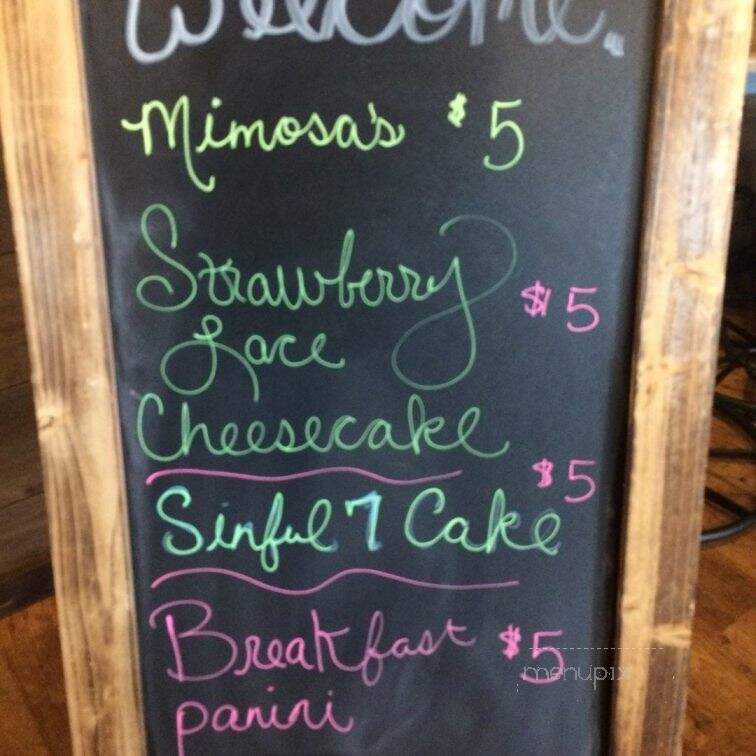 Welcome...
Mimosa's $5
Strawberry
Lace $5
Cheesecake
Sinful 7 Cake $5
Breakfast $5
panini
menupix